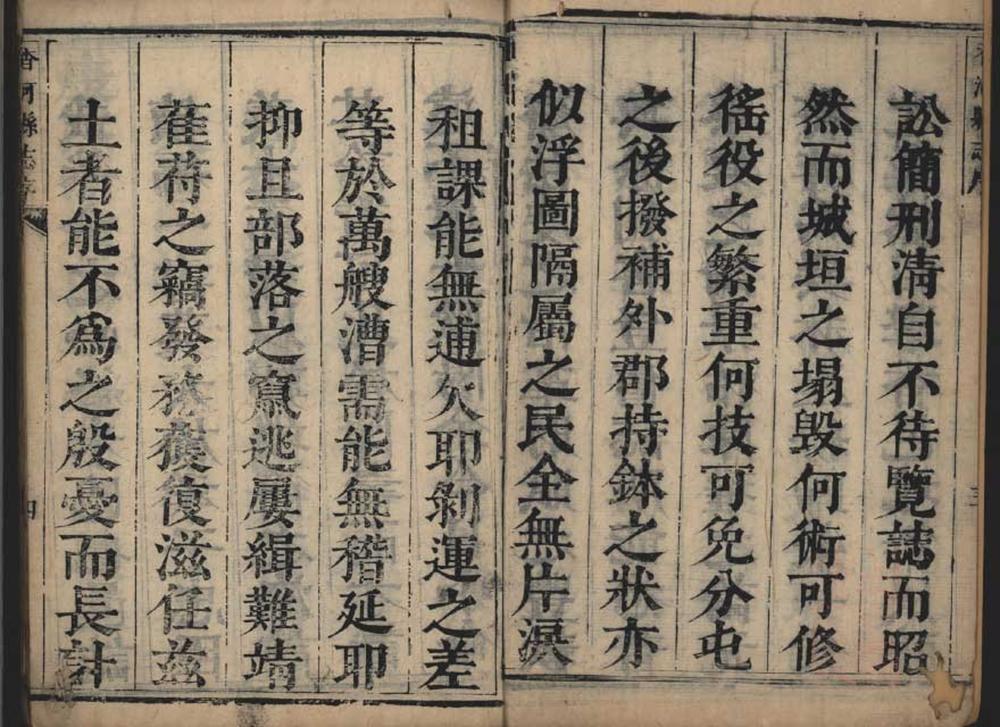 訟簡刑清自不待覽誌而昭
然而城垣之塌毀何術可修
徭役之繁重何技可免分屯
之後撥補外郡持鉢之狀亦
似浮圖隔屬之民全無片淚
三
租課能無逋欠耶剝運之差
等於萬艘漕需能無稽延耶
抑且部落之窩逃屢緝難靖
萑苻之竊發務獲復滋任茲
土者能不為之殷憂而長計
香河縣志序
四